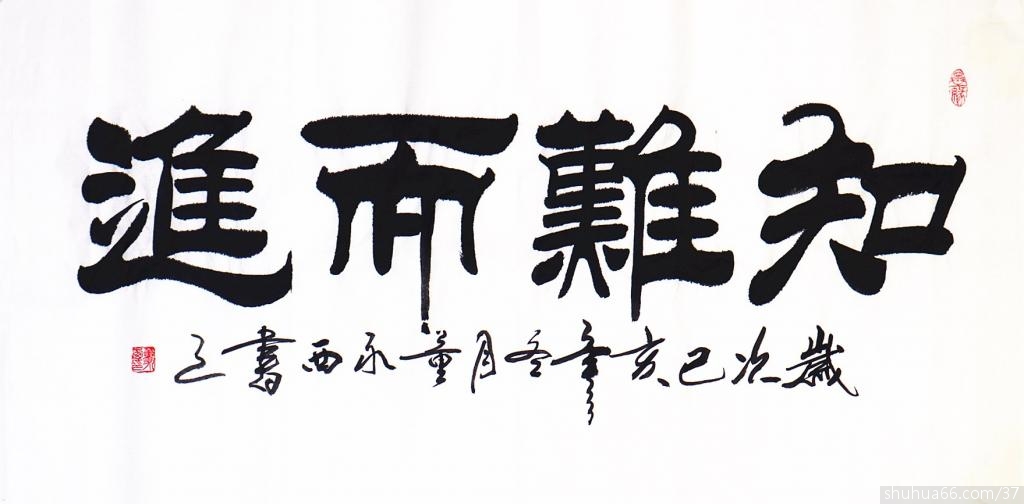 知難而進
歲次己亥年冬月董永西書之
shuhua66.com/37